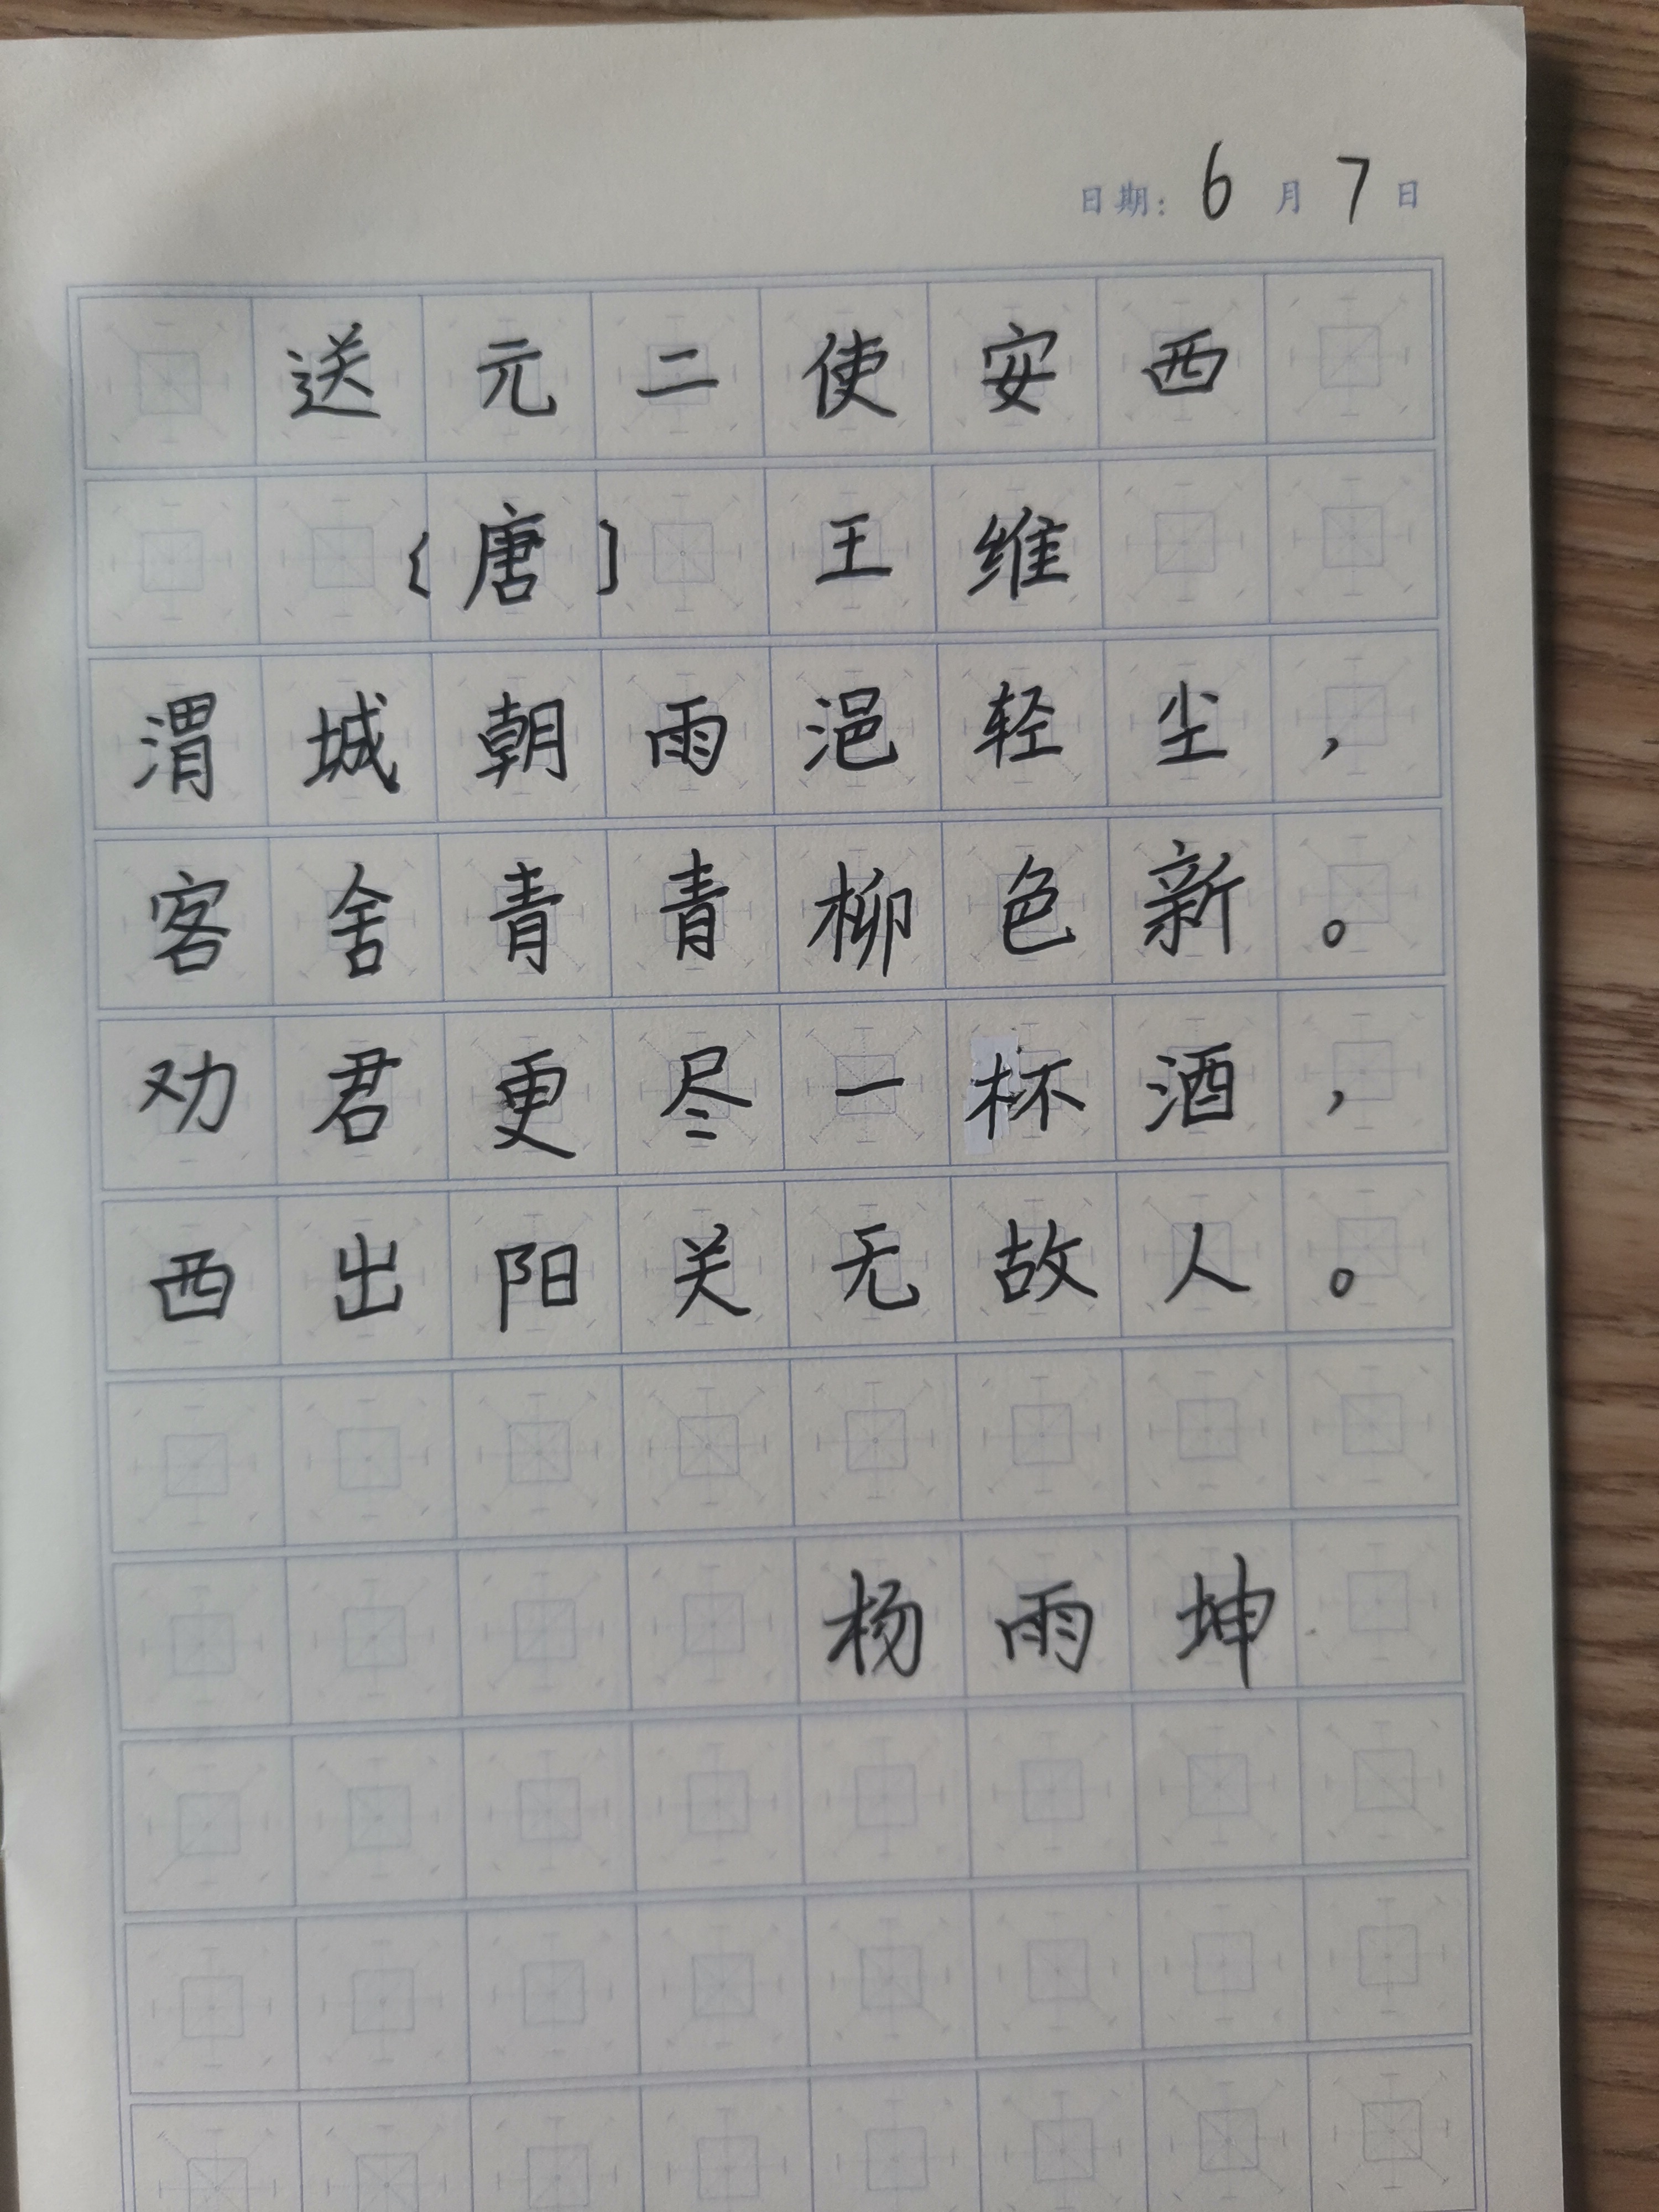 日期：6月7日
送元二使安西
{唐]王维
渭城朝雨浥轻尘，
客舍青青柳色新。
劝君更尽一杯酒，
西出阳关无故人。
杨雨坤